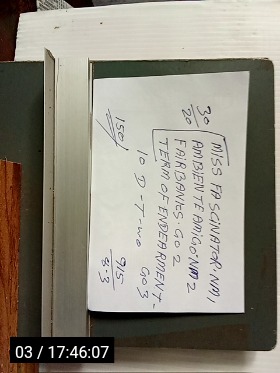 30
20
MISS FASCINATOR. NM,
AMBIENTE AMIGO. NM 2
FAIRBANKS. GO 2
TERM OF ENDEARMENT -
10 D - T - WO GO 3
150
915
8.3
03 / 17:46:07